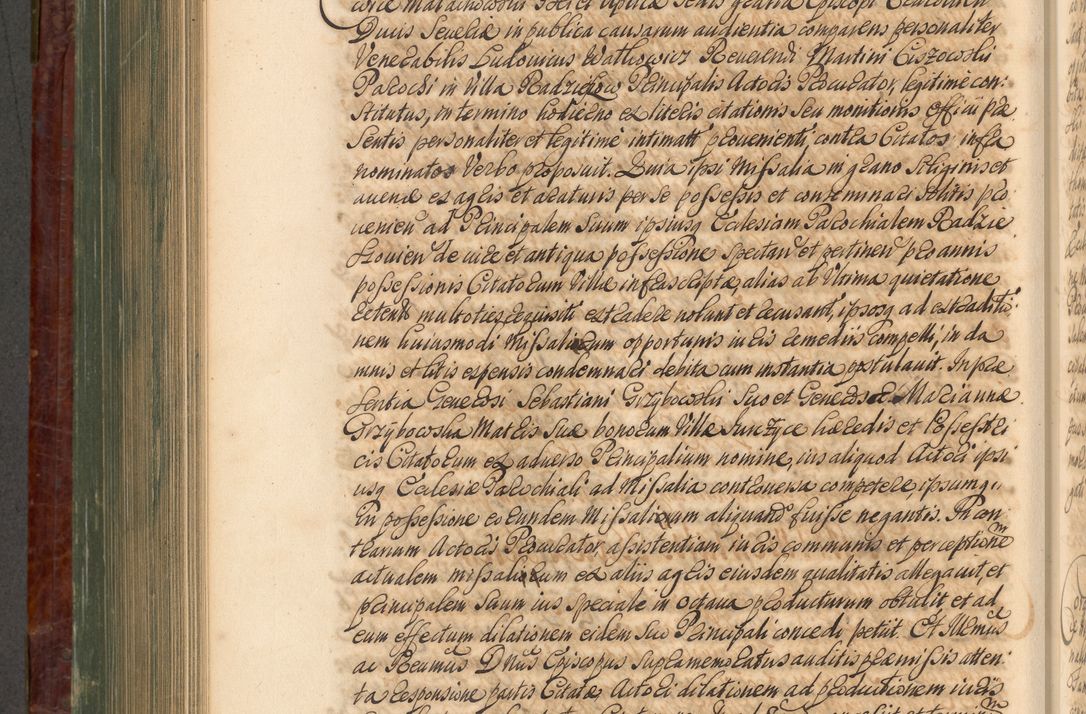 Duius Seueliæ in publica causarum audientia comparens personaliter
Venerabilis Ludouicus Watlowicz Reuerendi Martini Ciszocoslii
Parochi in Villa Radziechow Principalis Actoris Procurator, legitimè con:
stitutus, in termino hodierno ex literis citationis seu monitionis officii præ
sentis personaliter et legitimè intimatt prouenienti, contra Citatos infra
nominatos Verbo proposuit. Quia ipsi Missalia in grano Siliginis et
auenæ ex agris et araturis per se possessis et conterminari solitis pro
uenien ad Principalem Suum ipsiusq Ecclesiam Parochialem Radzie
chouien de iure et antiqua possessione spectan et pertinen pro annis
possessionis Citatorum Villæ infrascriptæ, alias ab Vltima quietatione
retent multoties requisiti extradere nolunt et recusant, ipsosq ad extraditio
nem huiusmodi Missalium opportunis iuris remediis compelli, in da
mnis et litis expensis condemnari debita cum instantia postulauit. In præ
sentia Generosi Sebastiani Grzybowslii Suo et Generosæ Mariannæ
Grzybowska Matris Suæ bonorum Villæ Iurczyce hæredis et Possesstri
cis Citatorum ex aduerso Principalium nomine, ius aliquod Actori ipsi
usq Ecclesiæ Parochiali ad Missalia controuersa competere, ipsumq
In possessione eorundem Missalium aliquando fuisse negantis. In con
trarium Actoris Procurator, assistentiam iuris communis et perceptionem
actualem missalium ex aliis agris eiusdem qualitatis allegauit, et
principalem Suum ius speciale in octaua producturum obtulit et ad
eum effectum dilationem eidem Suo Principali concedi petiit. Et Illmus
ac Reumus Dnus Episcopus Supramemoratus auditis præmissis atten
ta responsione partis Citatæ Actori dilationem ad productionem iuris